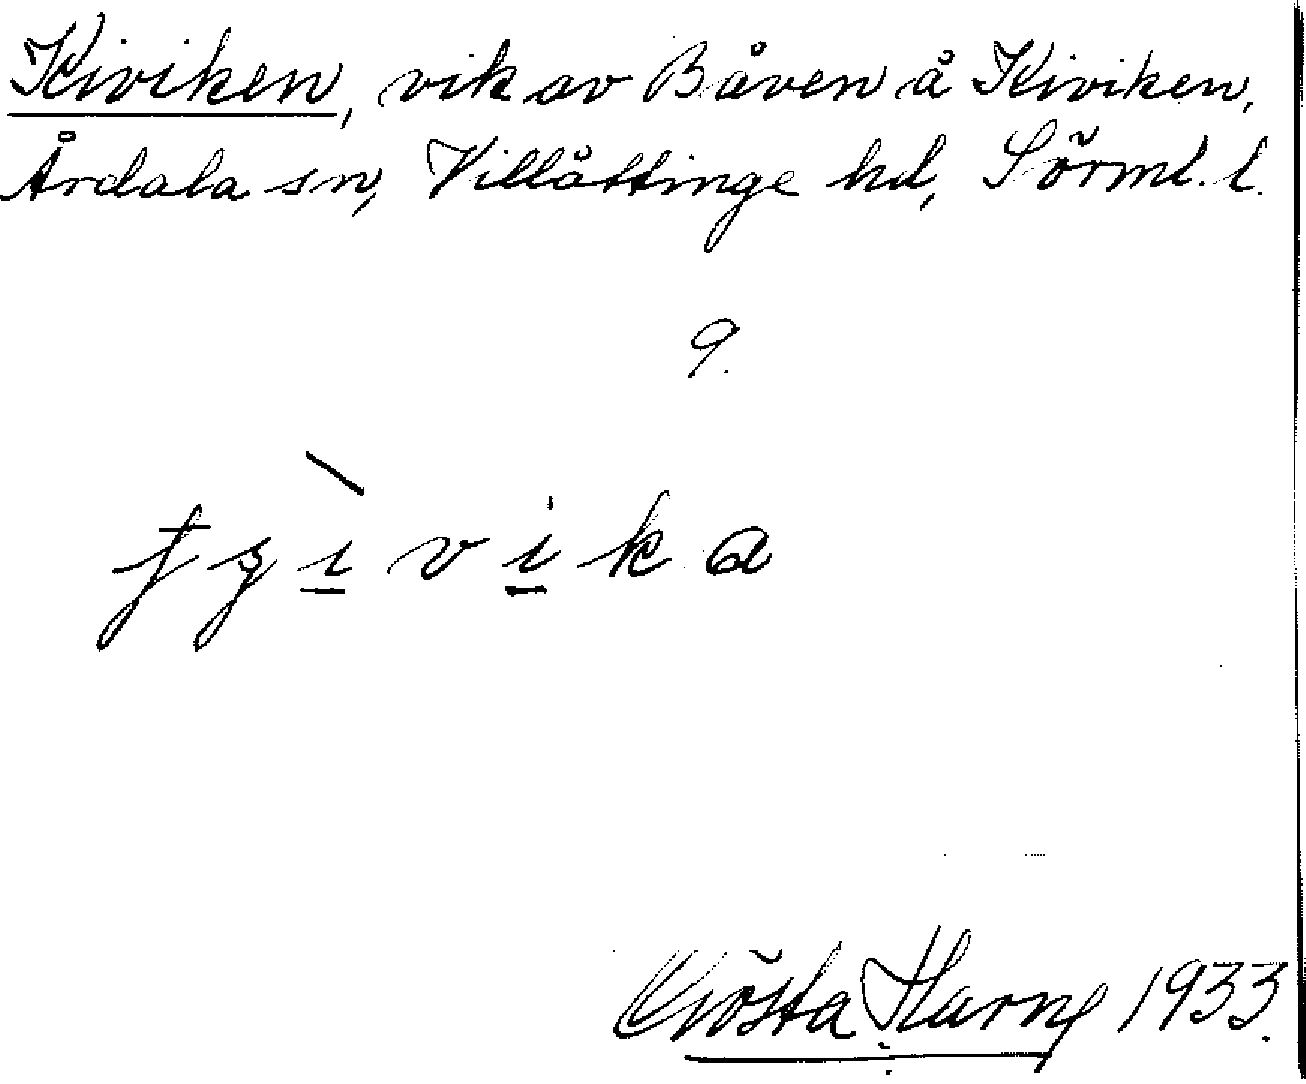 Kiviken, vik av Båven å Kiviken,
Årdala sn, Villåttinge hd, Sörml. l.
9.
Gösta Harne 1933.